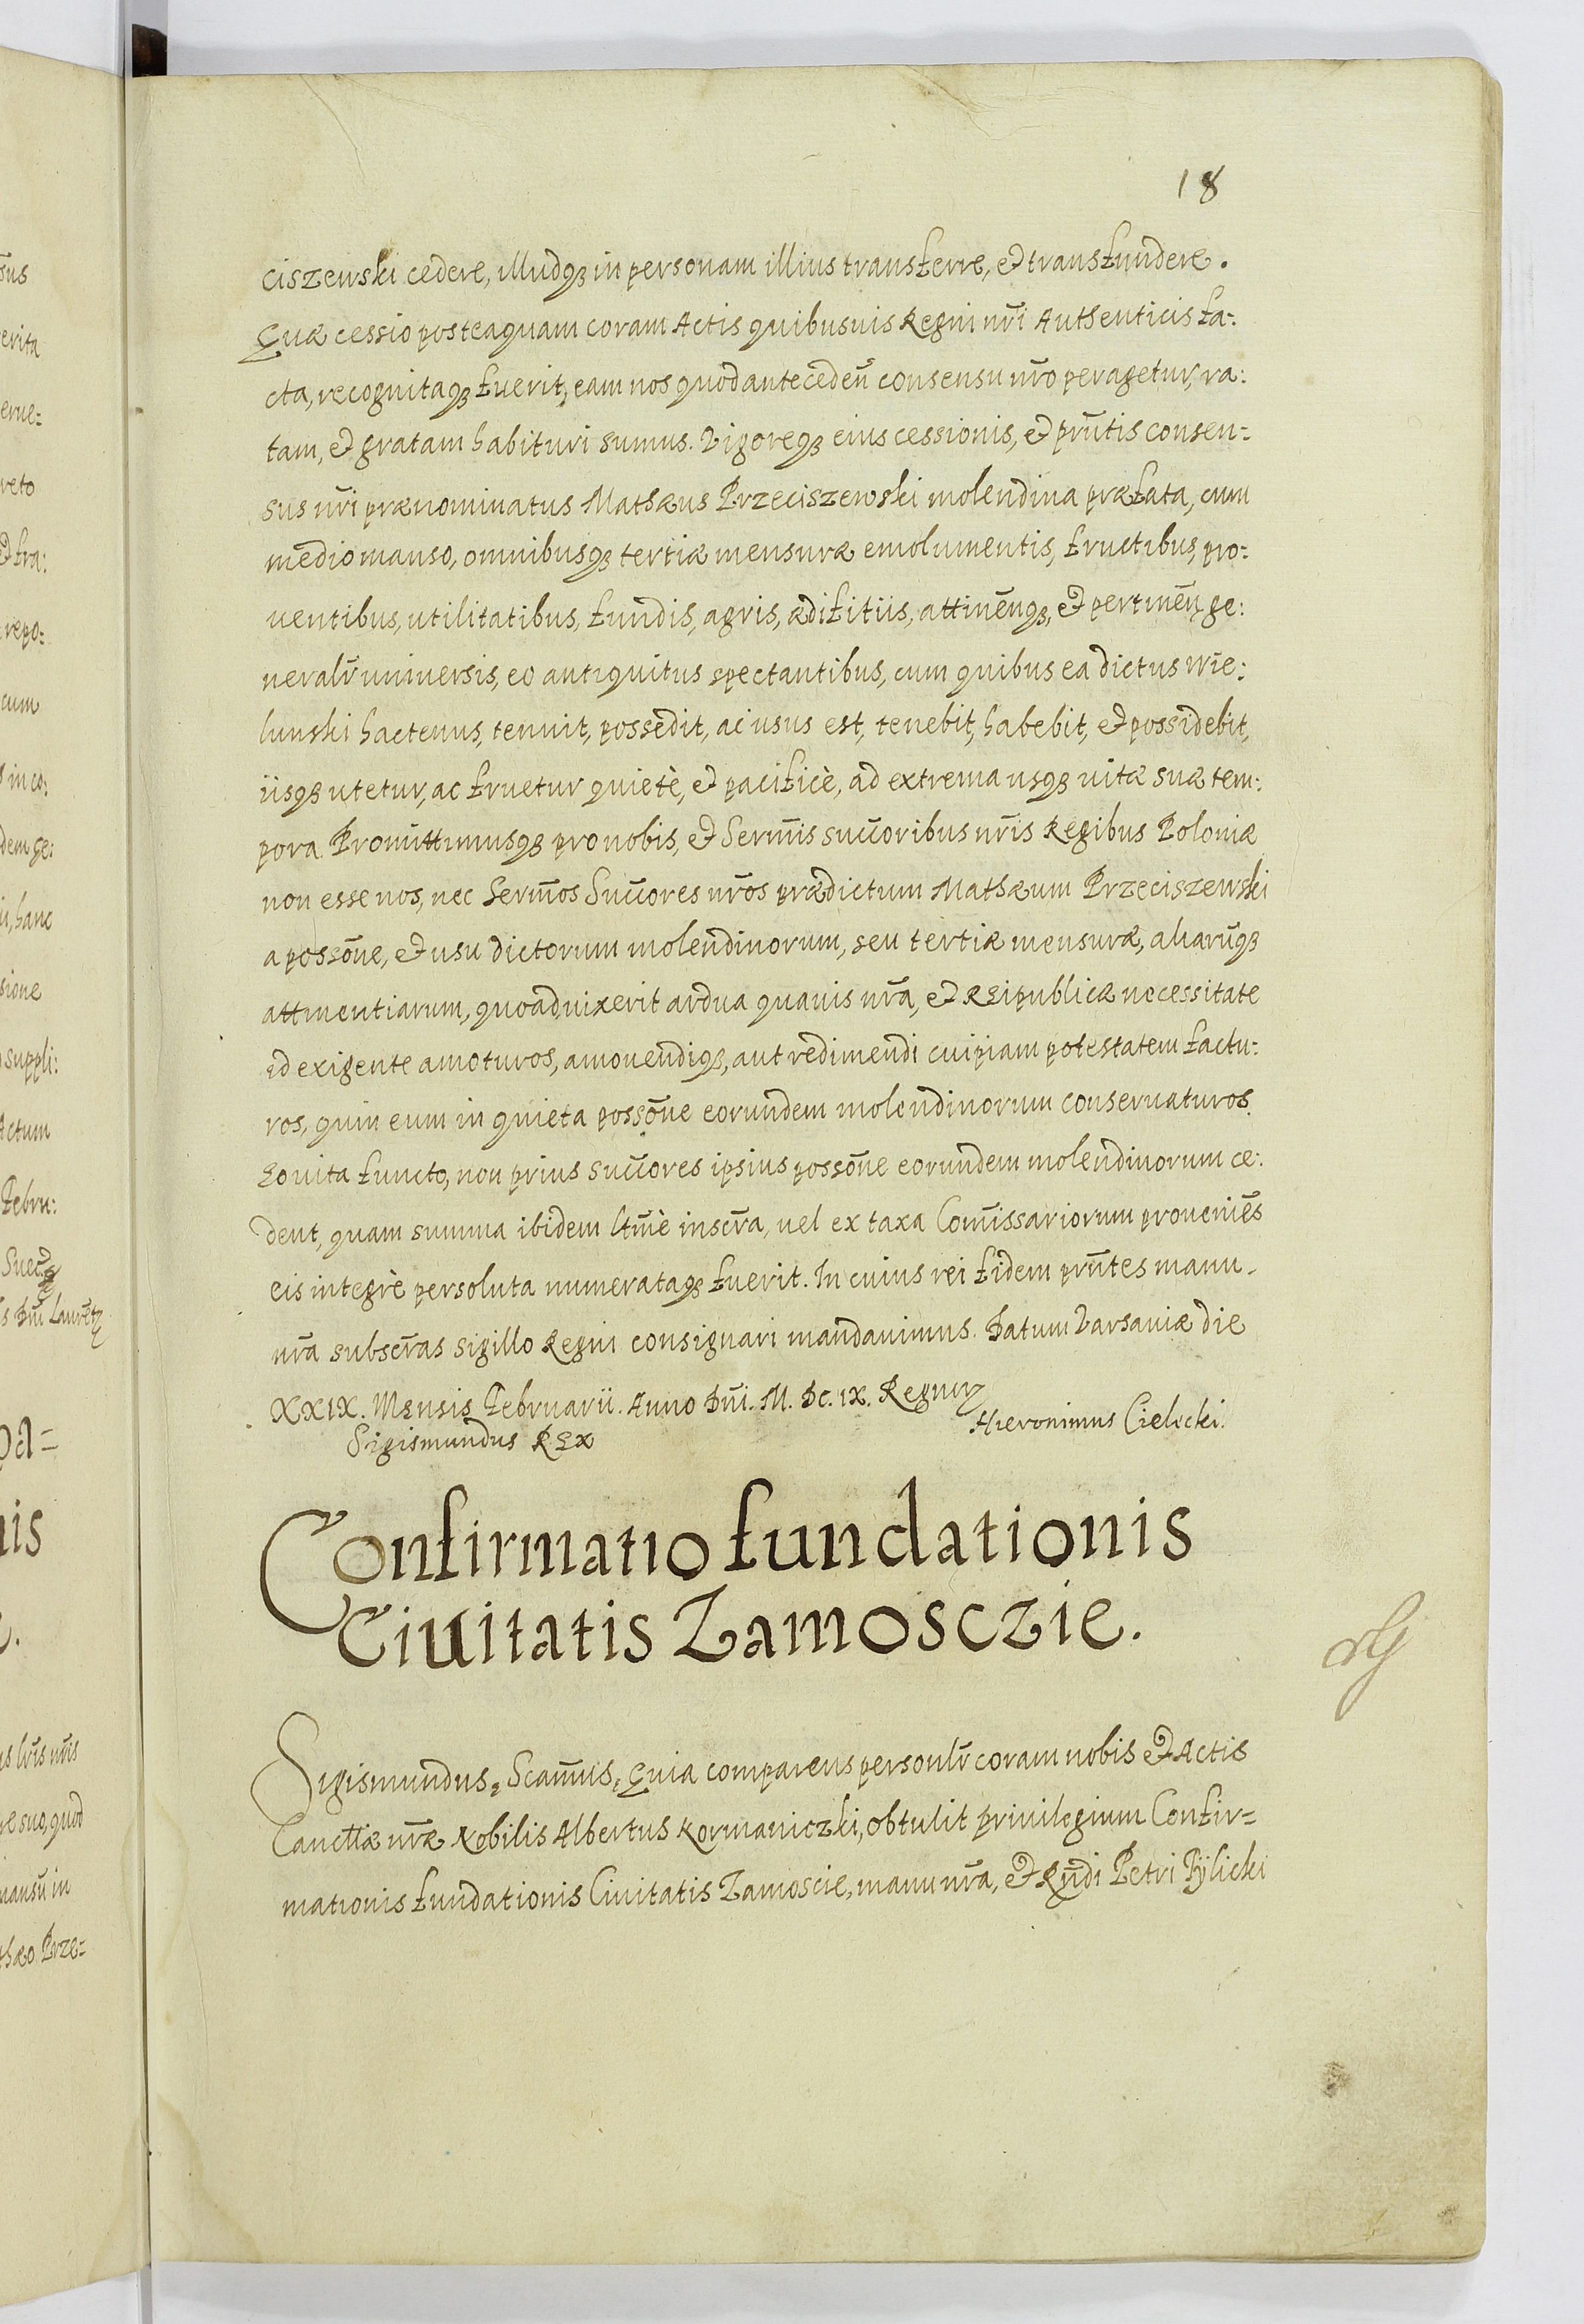 18
ciszewski cedere, illudqȝ in personam illius transferre, et transfundere.
Quæ cessio posteaquam coram Actis quibusuis Regni nr̃i Authenticis fa:
cta, recognitaqȝ fuerit, eam nos quod antecedeñ consensu nr̃o peragetur, ra:
tam, et gratam habituri sumus. Vigoreqȝ eius cessionis, et prñtis consen:
sus nr̃i prænominatus Mathæus Przeciszewski molendina præfata, cum
medio manso, omnibusqȝ tertiæ mensuræ emolumentis, fructibus, pro:
uentibus, utilitatibus, fundis, agris, ædifitiis, attineñqȝ, et pertineñ, ge:
neralr̃ uniuersis, eo antiquitus spectantibus, cum quibus ea dictus Wie:
lunski hactenus, tenuit, possedit, ac usus est, tenebit, habebit, et possidebit,
iisqȝ utetur, ac fruetur quietè, et pacificè, ad extrema usqȝ uitæ suæ tem:
pora. Promittimusqȝ pro nobis, et Serm̃is succ̃oribus nr̃is Regibus Poloniæ
non esse nos, nec Serm̃os Succ̃ores nr̃os prædictum Mathæum Przeciszewski
a possõne, et usu dictorum molendinorum, seu tertiæ mensuræ, aliarũqȝ
attinentiarum, quoad uixerit ardua quauis nr̃a, et Reipublicæ necessitate
id exigente amoturos, amouendiqȝ, aut redimendi cuipiam potestatem factu:
ros, quin eum in quieta possõne eorundem molendinorum conseruaturos.
Eo uita functo, non prius succ̃ores ipsius possõne eorundem molendinorum ce:
dent, quam summa ibidem ltm̃è inscr̃a, uel ex taxa Com̃issariorum proueniẽs
eis integrè persoluta numerataqȝ fuerit. In cuius rei fidem prñtes manu
nr̃a subscr̃as sigillo Regni consignari mandauimus. Datum Varsauiæ die
XXIX. Mensis Februarii. Anno Dñi. M. DC. IX. Regnorȝ
Sigismundus Rex
Hieronimus Cielecki.
Confirmatio fundationis
Ciuitatis Zamosczie.
Sigismundus, Scam̃us, Quia comparens personlr̃ coram nobis et Actis
Canclł̃æ nr̃æ Nobilis Albertus Kormaniczki, obtulit priuilegium Confir=
mationis fundationis Ciuitatis Zamoscie, manu nr̃a, et Rñdi Petri Tÿlicki